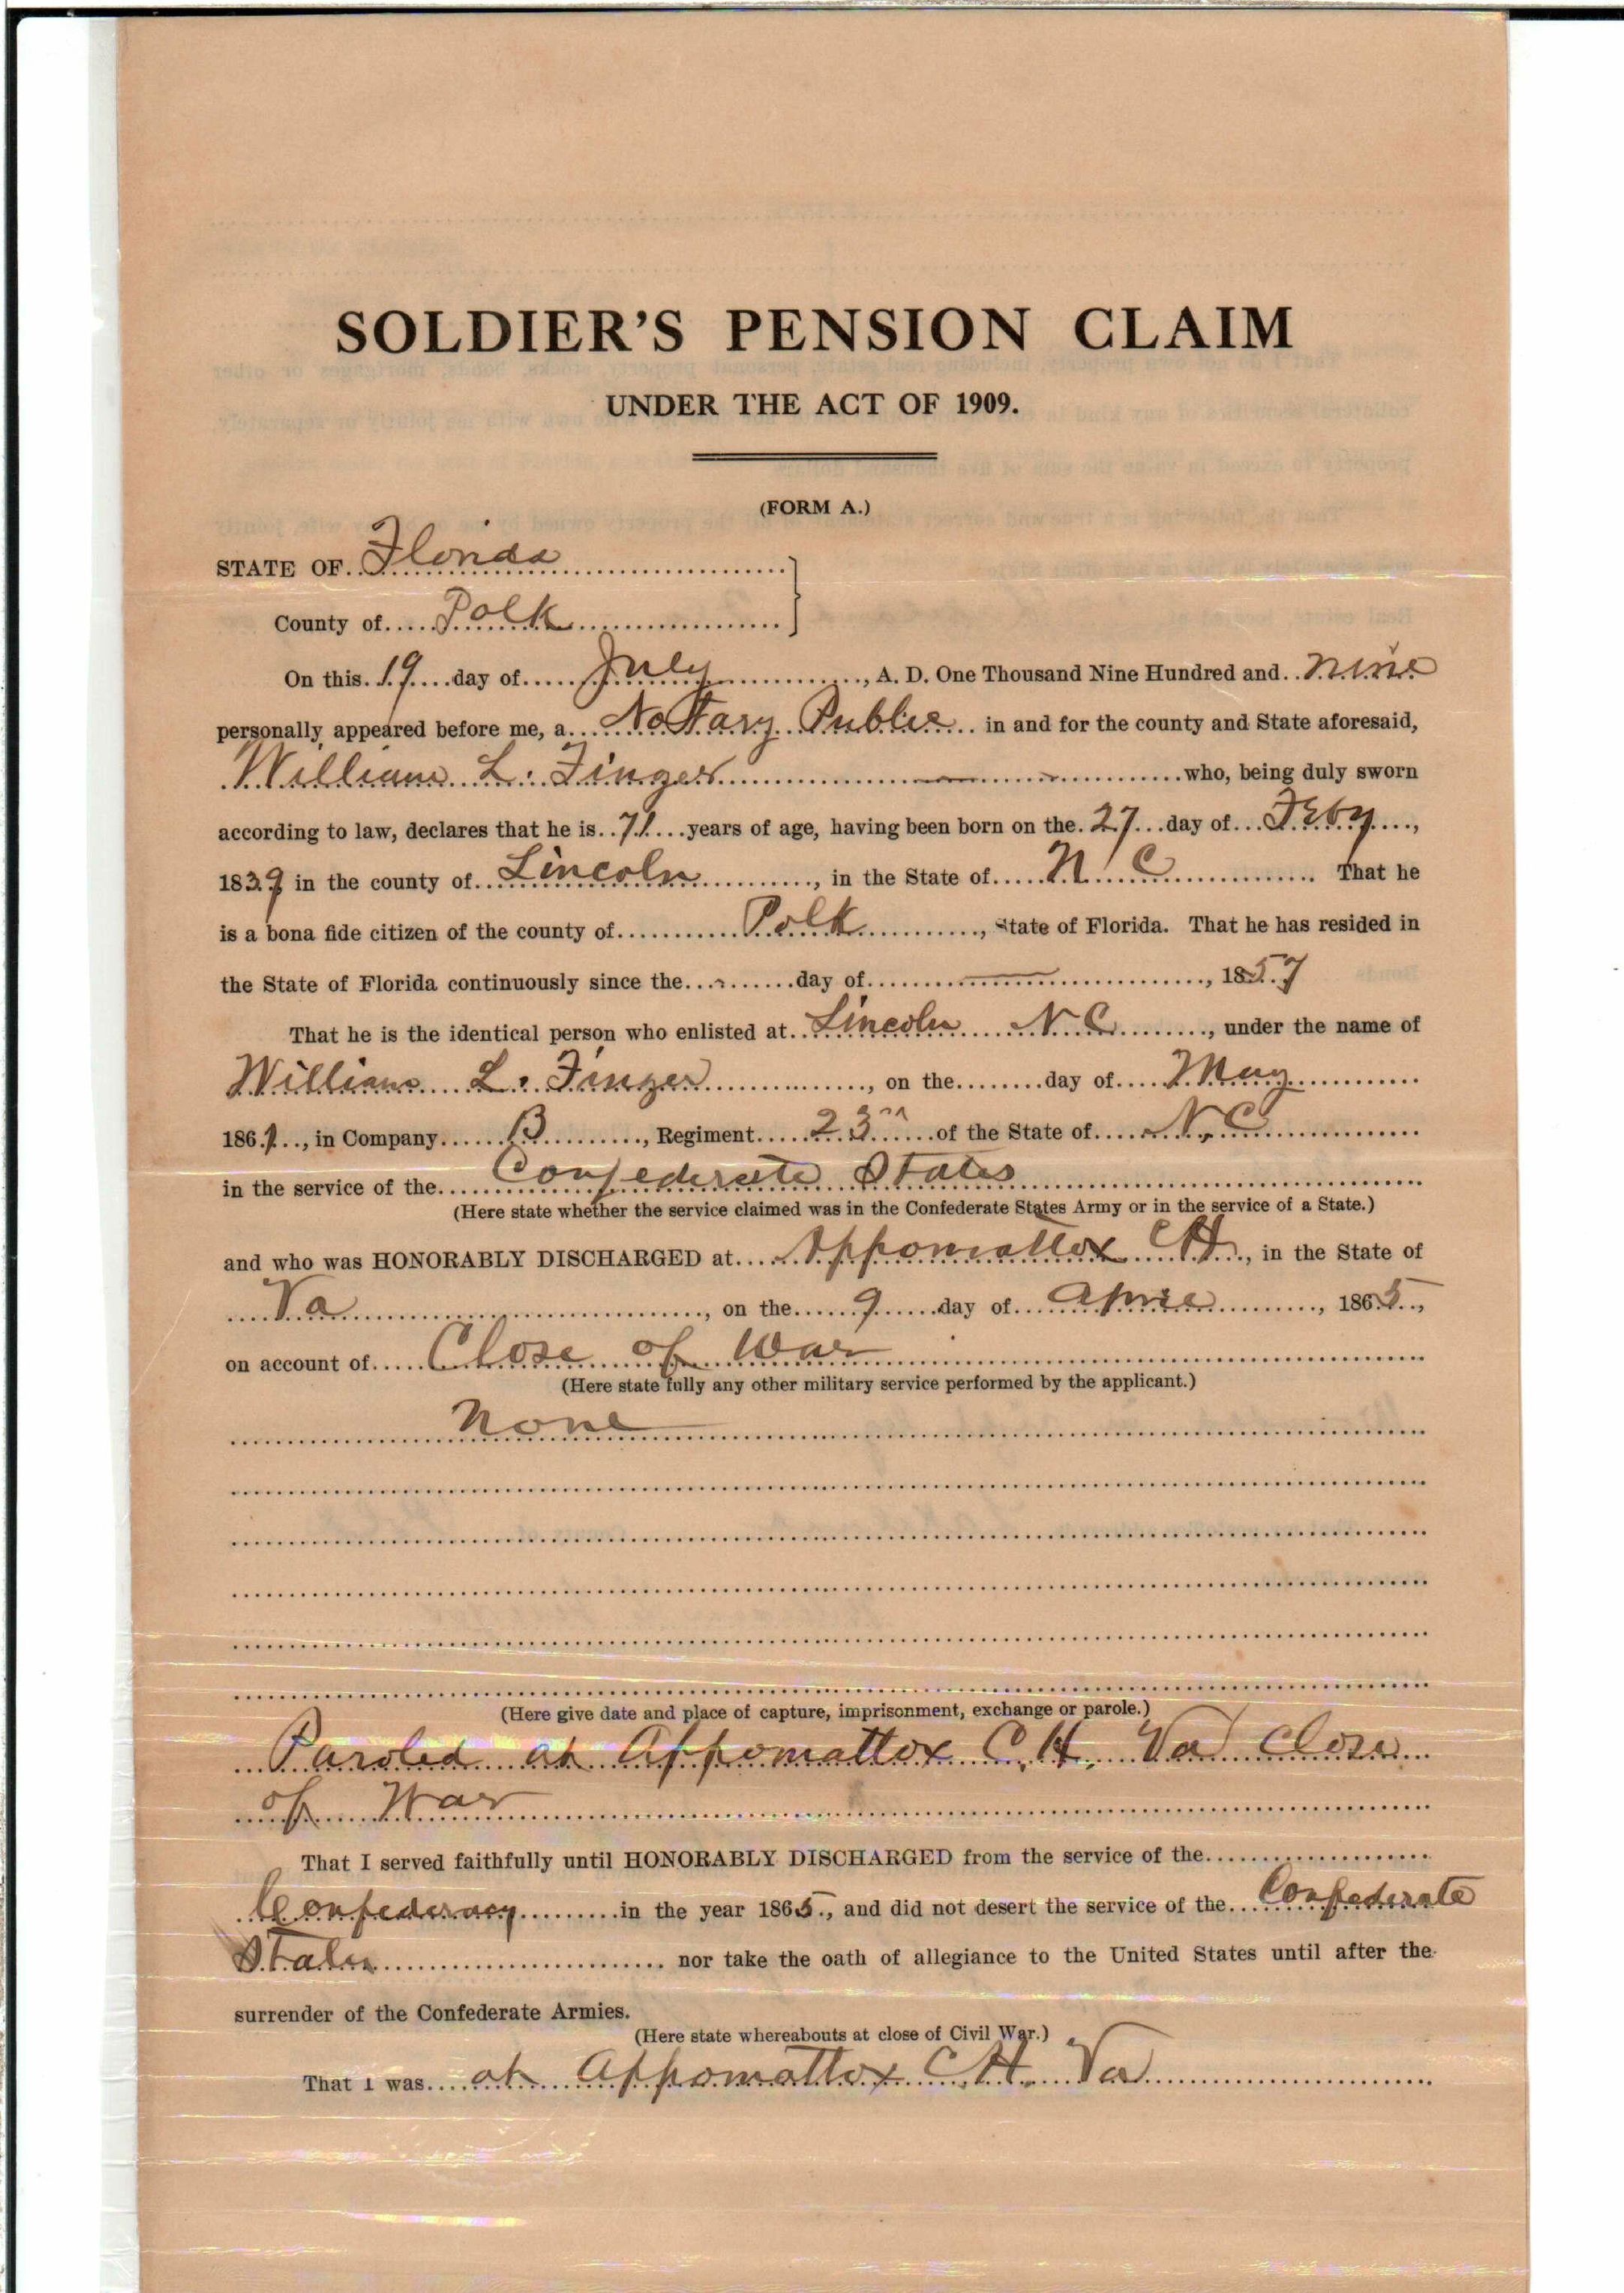 SOLDIER'S PENSION CLAIM
UNDER THE ACT OF 1909.
(FORM A.)
STATE OF Florida
County of Polk
On this 19 day of July, A. D. One Thousand Nine Hundred and nine
personally appeared before me, a Nottary Public in and for the county and State aforesaid,
William L. Finger who, being duly sworn
according to law, declares that he is 71 years of age, having been born on the 27 day of Feby,
1839 in the county of Lincoln, in the State of N C. That he
is a bona fide citizen of the county of Polk, State of Florida. That he has resided in
the State of Florida continuously since the day of , 1857
That he is the identical person who enlisted at Lincoln N. C., under the name of
William L. Finger, on the day of May
1861, in Company B, Regiment 23rd of the State of N. C.
in the service of the Confederate States
(Here state whether the service claimed was in the Confederate States Army or in the service of a State.)
and who was HONORABLY DISCHARGED at Appomattox C H, in the State of
Va, on the 9 day of April, 1865,
on account of Close of War
(Here state fully any other military service performed by the applicant.)
None
(Here give date and place of capture, imprisonment, exchange or parole.)
Paroled at Appomattox C. H. Va Close
of War
That I served faithfully until HONORABLY DISCHARGED from the service of the
Confederacy in the year 1865, and did not desert the service of the Confederate
States nor take the oath of allegiance to the United States until after the
surrender of the Confederate Armies.
(Here state whereabouts at close of Civil War.)
That I was at Appomattox C. H. Va